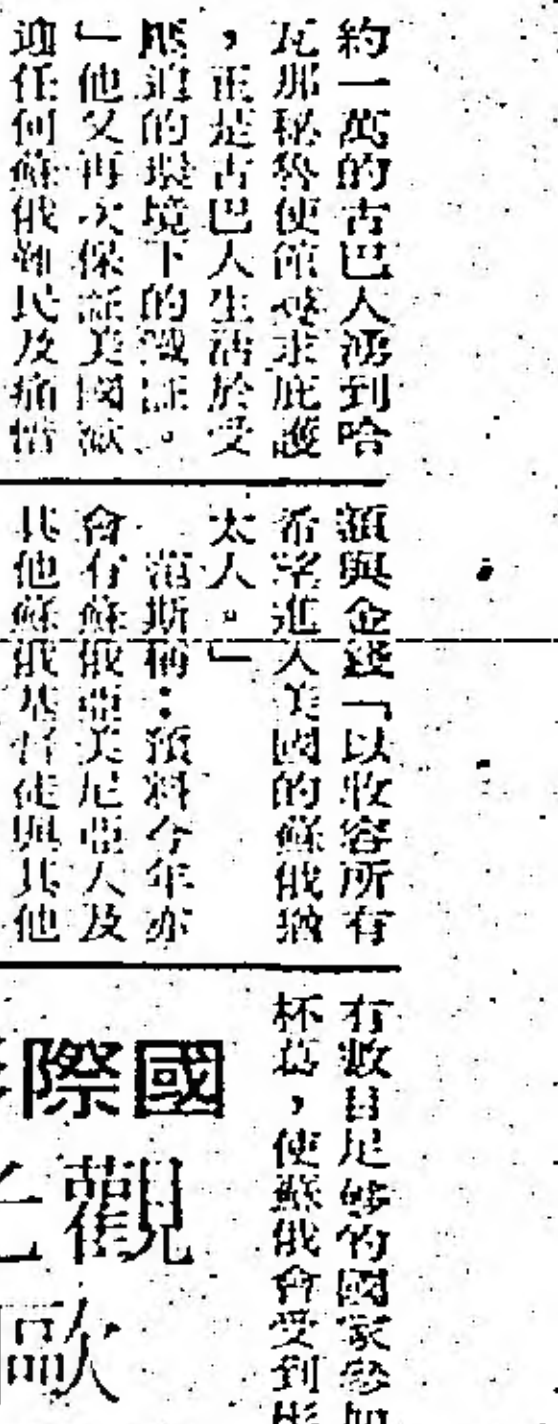 約一萬的古巴人湧到哈
瓦那秘魯使館尋求庇護
，正是古巴人生活於受
壓迫的環境下的證。
」他又再次保証美國歡
迎任何蘇俄難民及痛惜
額與金錢「以收容所有
希望進入美國的蘇俄猶
太人。」
范斯稱：預料今年亦
會有蘇俄亞美尼亞人及
其他蘇俄基督徒與其他
有數目足够的國家參加
杯葛，使蘇俄會受到
國際
觀
歐